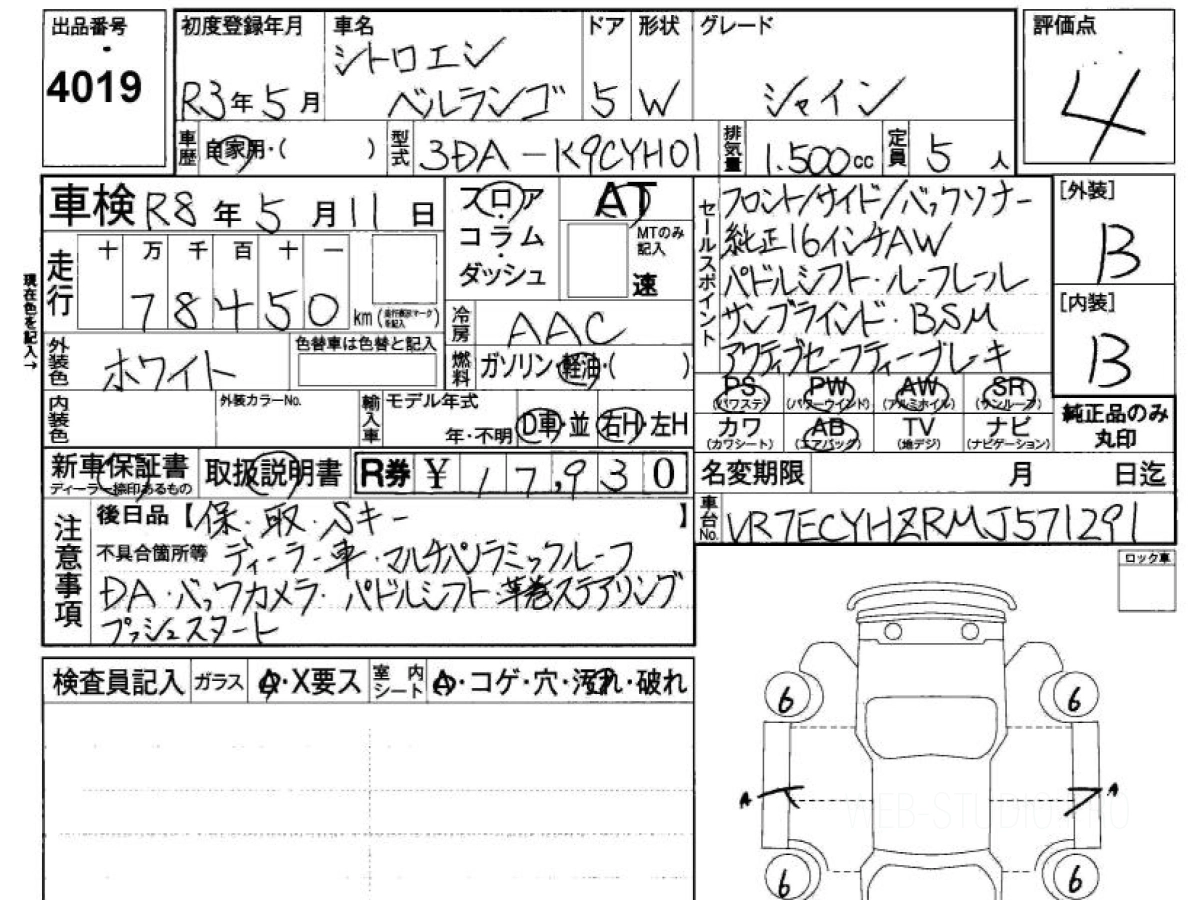 出品番号
4019
初度登録年月
R3年5月
車名
シトロエン
ベルランゴ
ドア
5
形状
W
グレード
シャイン
評価点
4
車歴
自家用・( )
型式
3DA-K9CYH01
排気量
1.500cc
定員
5人
車検 R8年5月11日
フロア
コラム
ダッシュ
AT
MTのみ記入
速
セールスポイント
フロント/サイド/バックソナー
純正16インチAW
パドルシフト・ルーフレール
サンブラインド・BSM
アクティブセーフティーブレーキ
[外装]
B
[内装]
B
現在色を記入→
走行
十 万 千 百 十 一
78450
km
冷房
AAC
外装色
ホワイト
色替車は色替と記入
燃料
ガソリン・軽油・( )
PS
(パワステ)
PW
(パワーウインド)
AW
(アルミホイル)
SR
(サンルーフ)
カワ
(カワシート)
AB
(エアバッグ)
TV
(地デジ)
ナビ
(ナビゲーション)
純正品のみ
丸印
内装色
外装カラーNo.
輸入車
モデル年式
年・不明
D車・並
右H・左H
新車保証書
ディーラー捺印あるもの
取扱説明書
R券 ¥ 17,930
名変期限 月 日迄
車台No.
VR7ECYHZRMJ571291
注意事項
後日品【保・取・Sキー 】
不具合箇所等 ディーラー車・マルチパノラミックルーフ
DA・バックカメラ・パドルシフト 革巻ステアリング
プッシュスタート
ロック車
検査員記入
ガラス
A・X要ス
室内シート
A・コゲ・穴・汚れ・破れ
6
6
A
A
WEB-STUDIO.PRO
6
6